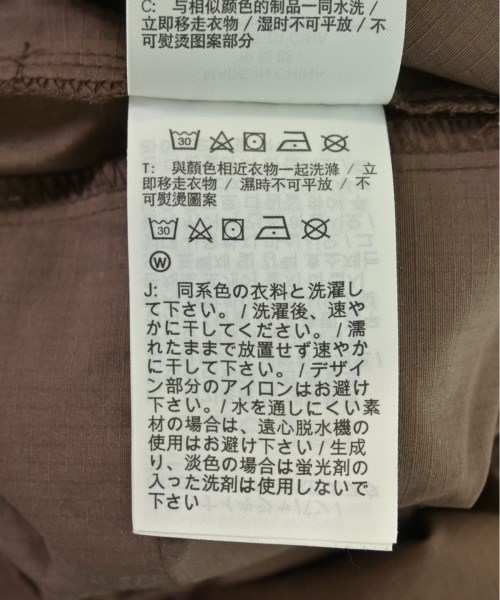 C: 与相似颜色的制品一同水洗 /
立即移走衣物 / 湿时不可平放 / 不
可熨烫图案部分
30
T: 與顏色相近衣物一起洗滌 / 立
即移走衣物 / 濕時不可平放 / 不
可熨燙圖案
30
W
J: 同系色の衣料と洗濯し
て下さい。/ 洗濯後、速や
かに干してください。/ 濡
れたままで放置せず速やか
に干して下さい。/ デザイ
ン部分のアイロンはお避け
下さい。/ 水を通しにくい素
材の場合は、遠心脱水機の
使用はお避け下さい / 生成
り、淡色の場合は蛍光剤の
入った洗剤は使用しないで
下さい